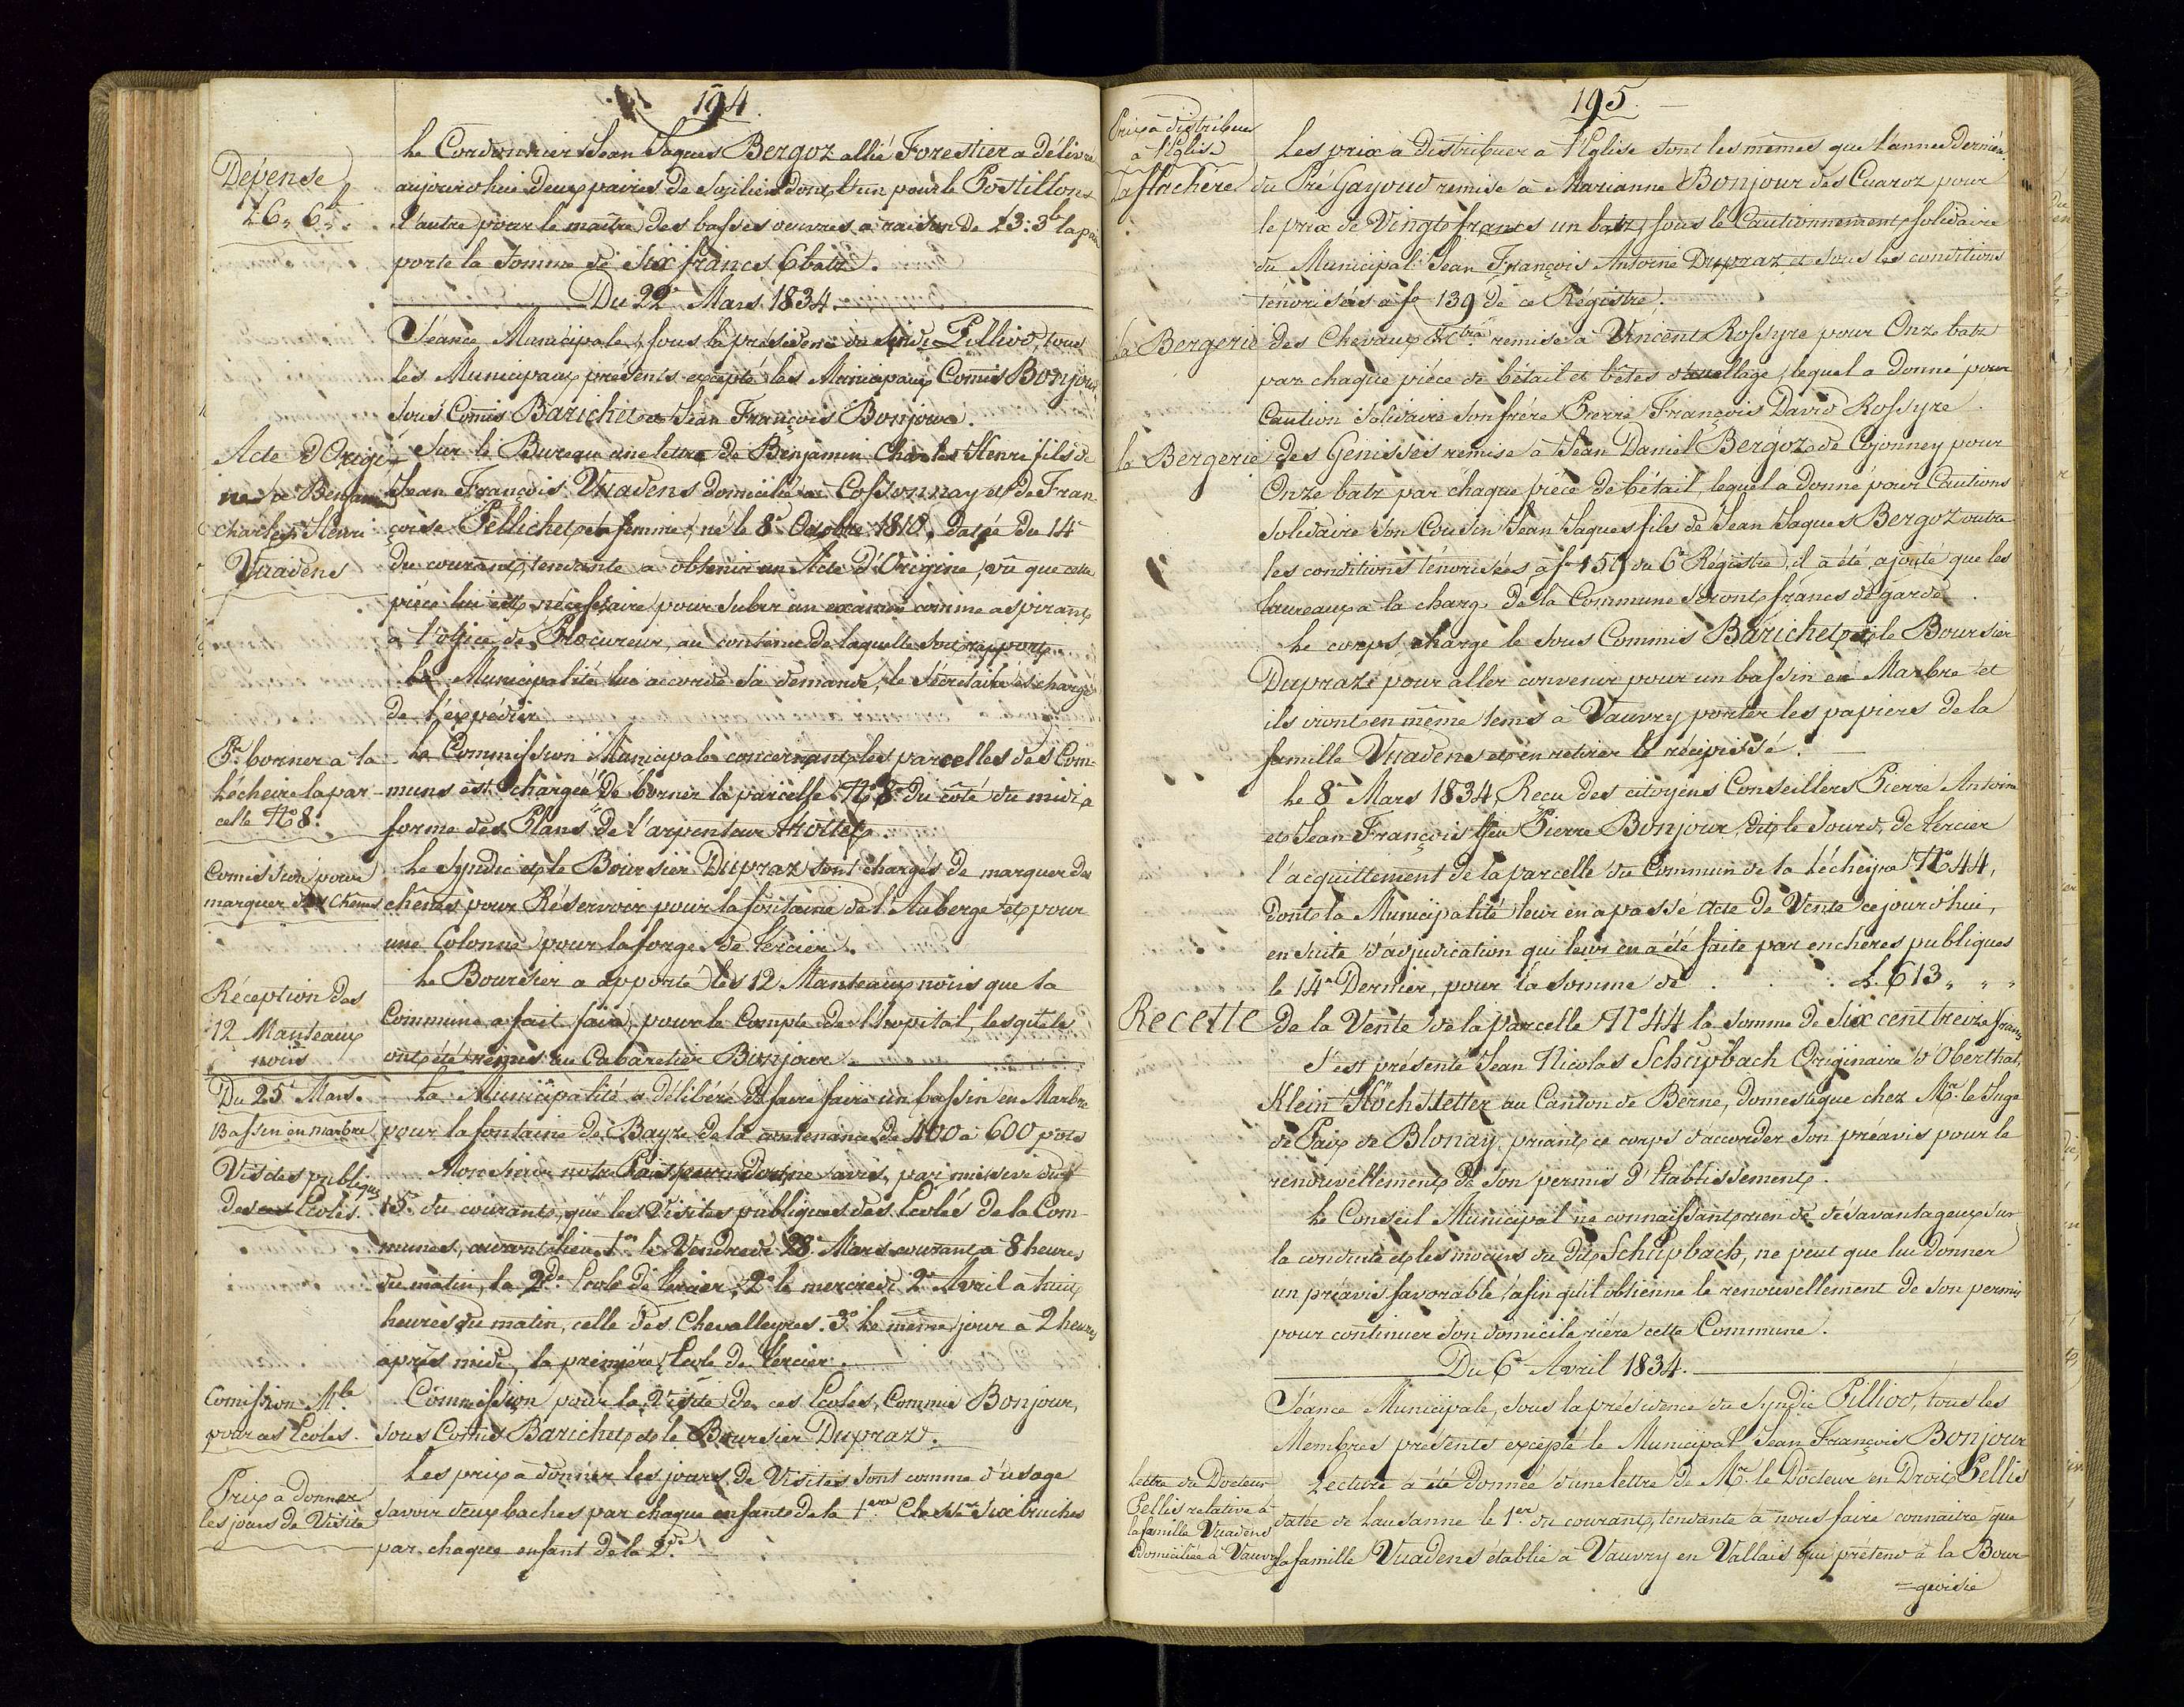 194.
Dépense
L 6,, 6 bz ,,
Le Cordonnier Jean Jaques Bergoz allié Forestier a délivré
aujourd'hui deux paires de Souliers dont l'un pour le Postillon
l'autre pour le maitre des basses oeuvres a raison de L 3: 3 bz la paire
porte la somme de Six francs 6 batz.
Du 22e Mars 1834
Séance Municipale, sous la présidence du Sindic Pilliod, tous
les Municipaux présents excepté les Municipaux Comis Bonjour
Sous Comis Barichet et Jean François Bonjour.
Acte d'Origi-
ne de Benjamin
Charles Henri
Vuadens
Sur le Bureau une lettre de Benjamin Charles Henri fils de
Jean François Vuadens domicilié a Cossonnay et de Fran-
çoise Pellichet sa femme, né le 8e Octobre 1810, datée du 14e
du courant, tendante a obtenir un Acte d'Origine, vû que cette
pièce lui est nécessaire pour subir un examen comme aspirant
a l'office de Procureur, au contenu de laquelle soit rapport.
La Municipalité lui accorde sa demande, le Sécrétaire est chargé
de l'éxpédier
Pr. borner à la
Lécheire la par-
celle No 8.
La Commission Municipale concernant les parcelles des Com-
muns est chargée de borner la parcelle No 8 du coté du midi a
forme des Plans de l'arpenteur Mottet.
Comission pour
marquer des Chênes
Le Syndic et le Boursier Dupraz sont chargés de marquer des
chênes pour Réservoir pour la fontaine de l'Auberge et pour
une Colonne pour la forge de Lercier.
Réception des
12 Manteaux
noirs
Le Boursier a apporté les 12 Manteaux noirs que la
Commune a fait faire, pour le Compte de l'hopital, lesquels
ont été remis au Cabaretier Bonjour.
Du 25e Mars.
Bassin en marbre
La Municipalité a délibéré de faire faire un bassin en Marbre
pour la fontaine de Bayze de la contenance de 400 à 600 pots
Visites publiques
des Ecoles.
Monsieur notre Pasteur donne avis, par missive du
15e du courant, que les Visites publiques des Ecoles de la Com-
munes, auront lieu, 1o le Vendredi 28e Mars courant a 8 heures
du matin, la 2de Ecole de Lercier, 2o le mercredi 2e Avril a huit
heures du matin, celle des Chevalleyres. 3o Le même jour a 2 heures
après midi, la première Ecole de Lercier.
Comission Mle
pour ces Ecoles.
Commission pour la Visite de ces Ecoles, Commis Bonjour,
Sous Comis Barichet et le Boursier Dupraz.
Prix a donner
les jours de Visite
Les prix a donner les jours de Visites sont comme d'usage
Savoir deux baches par chaque enfant de la 1ere Classe Six cruches
par chaque enfant de la 2de.
195.
Prix a distribuer
a l'Eglise
Les prix a distribuer a l'Eglise sont les mêmes que l'année dernière.
La flachère
du Pré Gayoud remise a Marianne Bonjour des Cuaroz pour
le prix de Vingt francs un batz, sous le Cautionnement solidaire
du Municipal Jean François Antoine Dupraz et sous les conditions
ténorisées a fo 139 de ce Régistre.
La Bergerie
des Chevaux remise a Vincent Rossyre pour Onze batz
par chaque pièce de bétail et bêtes d'auellage, lequel a donné pour
Caution Solidaire son frère Pierre François David Rossyre
La Bergerie
des Genisses remise a Jean Daniel Bergoz de Cojonney pour
Onze batz par chaque pièce de bétail, lequel a donné pour Cautions
Solidaire son Cousin Jean Jaques fils de Jean Jaques Bergoz outre
les conditions ténorisées a fo 151 du 6e Régistre, il a été ajouté que les
taureaux a la charge de la Commune seront francs de garde
Le corps charge le Sous Commis Barichet et le Boursier
Dupraz pour aller convenir pour un bassin en Marbre et
ils iront en même tems a Vauvry porter les papiers de la
famille Vuadens et en retirer le récipissé.
Le 8e Mars 1834, Reçu des citoyens Conseillers Pierre Antoine
et Jean François feu Pierre Bonjour, dit le Sourd, de Lercier
l'acquittement de la parcelle du Commun de la Lécheyre No 44,
dont la Municipalité leur en a passé Acte de Vente ce jourd'hui,
en suite d'adjudication qui leur en a été faite par enchères publiques
le 14e Dernier, pour la Somme de . . . L. 613,, ,, ,,
Recette
de la Vente de la parcelle No 44 la somme de Six cent treize francs
S'est présenté Jean Nicolas Schüpbach Originaire d'Oberthal,
Klein Höchstetter au Canton de Berne, domestique chez Mr. le Juge
de Paix de Blonay, priant ce corps d'accorder son préavis pour le
renouvellement de son permis d'Etablissement.
Le Conseil Municipal ne connaissant rien de désavantageux sur
la conduite et les moeurs du dit Schüpbach, ne peut que lui donner
un préavis favorable, afin qu'il obtienne le renouvellement de son permis
pour continuer son domicile rière cette Commune.
Du 6e Avril 1834.
Séance Municipale, sous la présidence du Syndic Pilliod, tous les
Membres présents excepté le Municipal Jean François Bonjour
Lettre du Docteur
Pellis relative à
la famille Vuadens
domiciliée à Vauvry
Lecture a été donnée d'une lettre de Mr. le Docteur en Droit Pellis
datée de Lausanne le 1er. du courant, tendante à nous faire connaitre que
la famille Vuadens établie à Vauvry en Vallais qui prétend à la Bour-
=geoisie